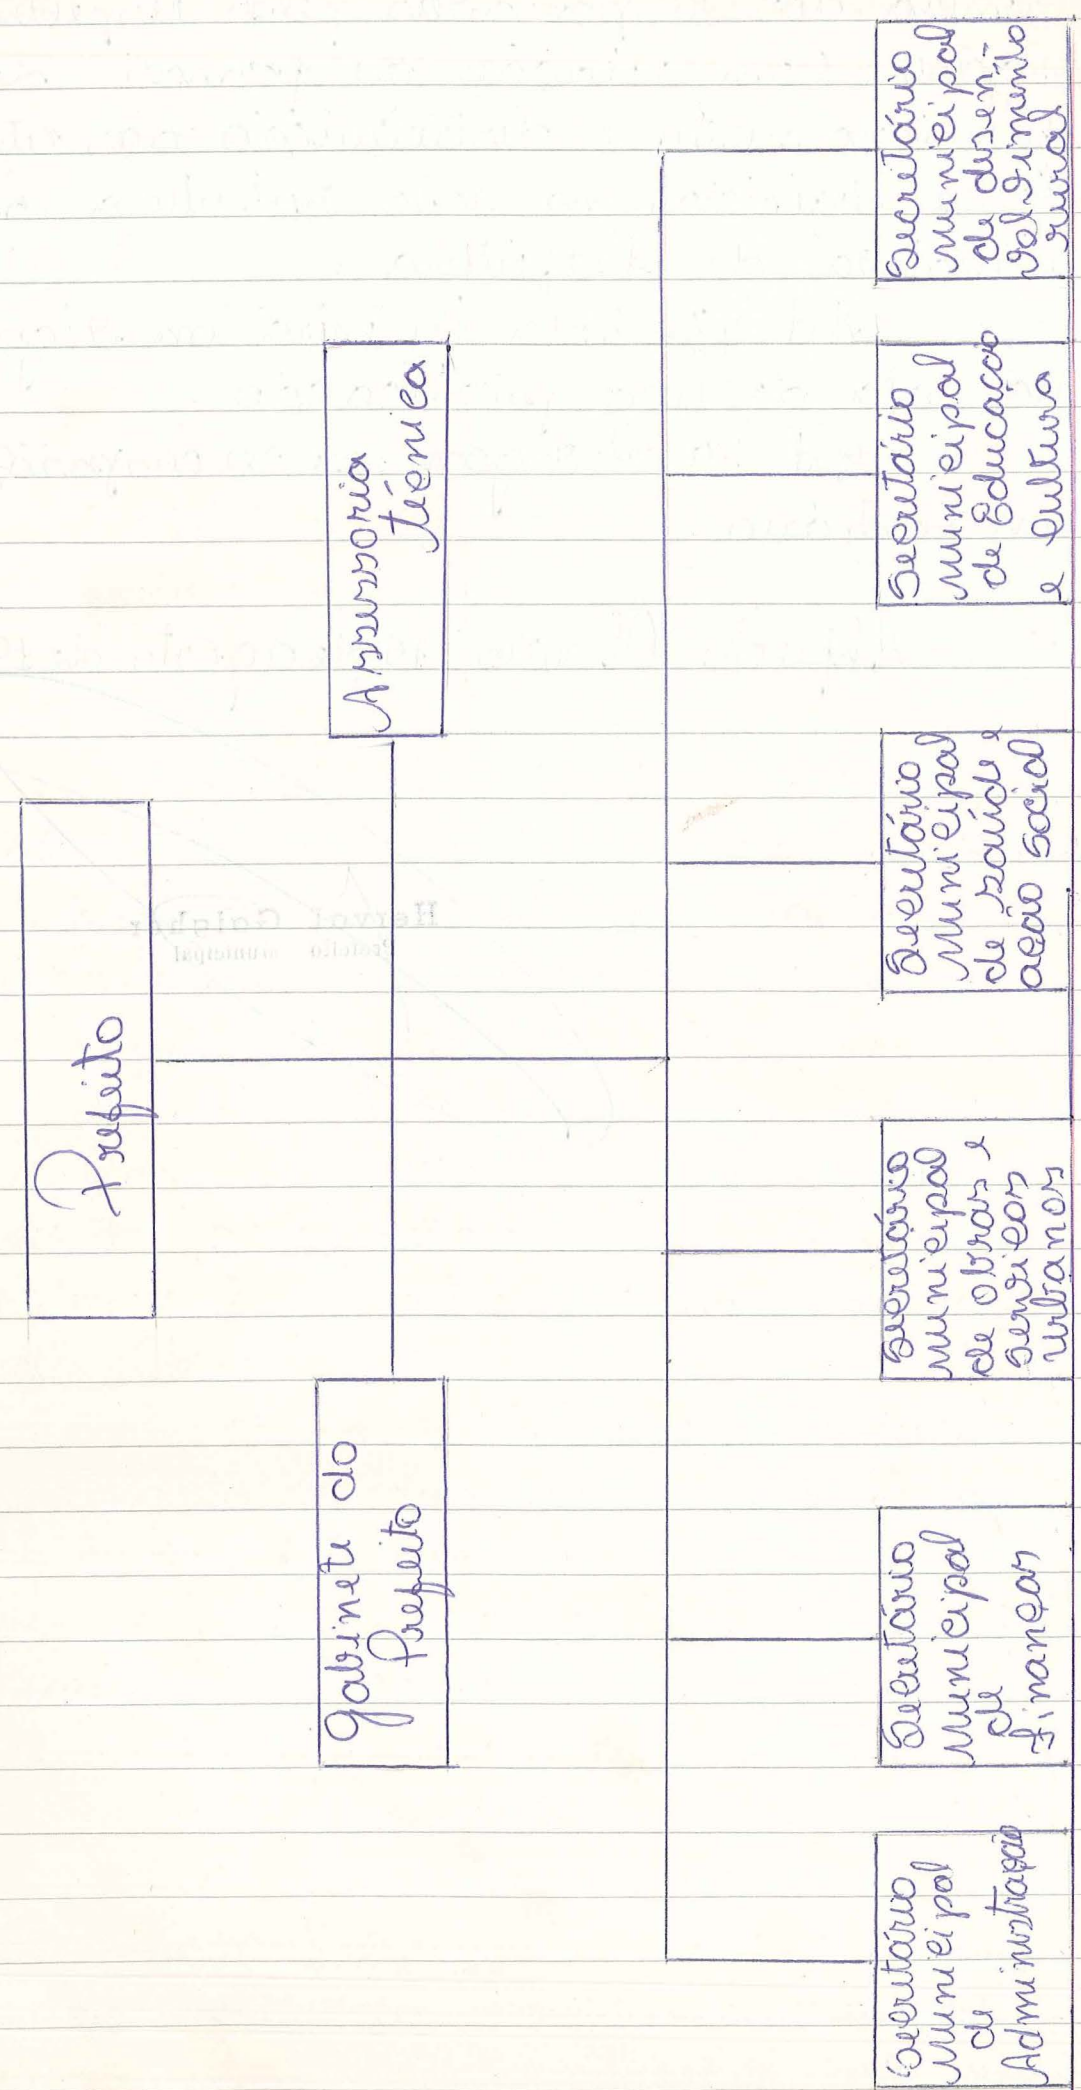 Prefeito
Gabinete do
Prefeito
Assessoria
técnica
Secretário
Municipal
de
Administração
Secretário
Municipal
de
Finanças
Secretário
Municipal
de obras e
Serviços
Urbanos
Secretário
Municipal
de saúde e
ação social
Secretário
Municipal
de Educação
e Cultura
Secretário
Municipal
de desen-
volvimento
rural